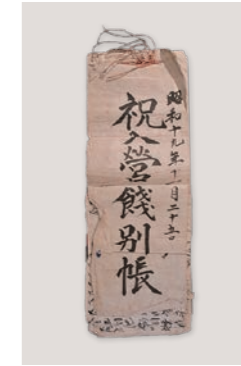 昭和十九年十一月二十五日
祝入營餞別帳